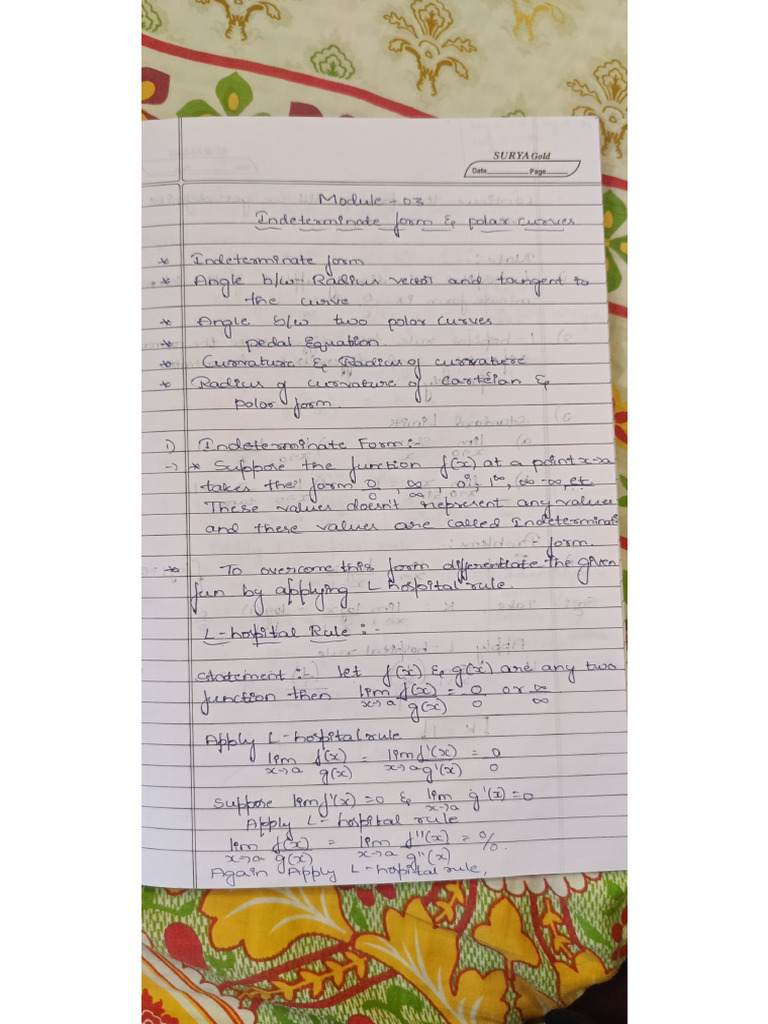 SURYA Gold
Date Page
Module - 03
Indeterminate form & polar curves
* Indeterminate form
* Angle b/w Radius vector and tangent to
the curve
* Angle b/w two polar curves
* pedal Equation.
* Curvature & Radius of curvature
* Radius of curvature of cartesian &
polar form.
1) Indeterminate Form:-
-> * Suppose the function f(x) at a point x→a
takes the form 0/0, ∞/∞, 0⁰, 1^∞, ∞-∞, etc
These values doesn't represent any values
and these values are called Indeterminate
- form.
* To overcome this form differentiate the given
fun by applying L hospital rule.
L-hospital Rule :-
Statement :- let f(x) & g(x) are any two
function then lim x→a f(x)/g(x) = 0/0 or ∞/∞
Apply L-hospital rule
lim x→a f(x)/g(x) = lim x→a f'(x)/g'(x) = 0/0
Suppose lim f'(x) = 0 & lim x→a g'(x) = 0
Apply L-hospital rule
lim x→a f(x)/g(x) = lim x→a f''(x)/g''(x) = 0/0.
Again Apply L-hospital rule,